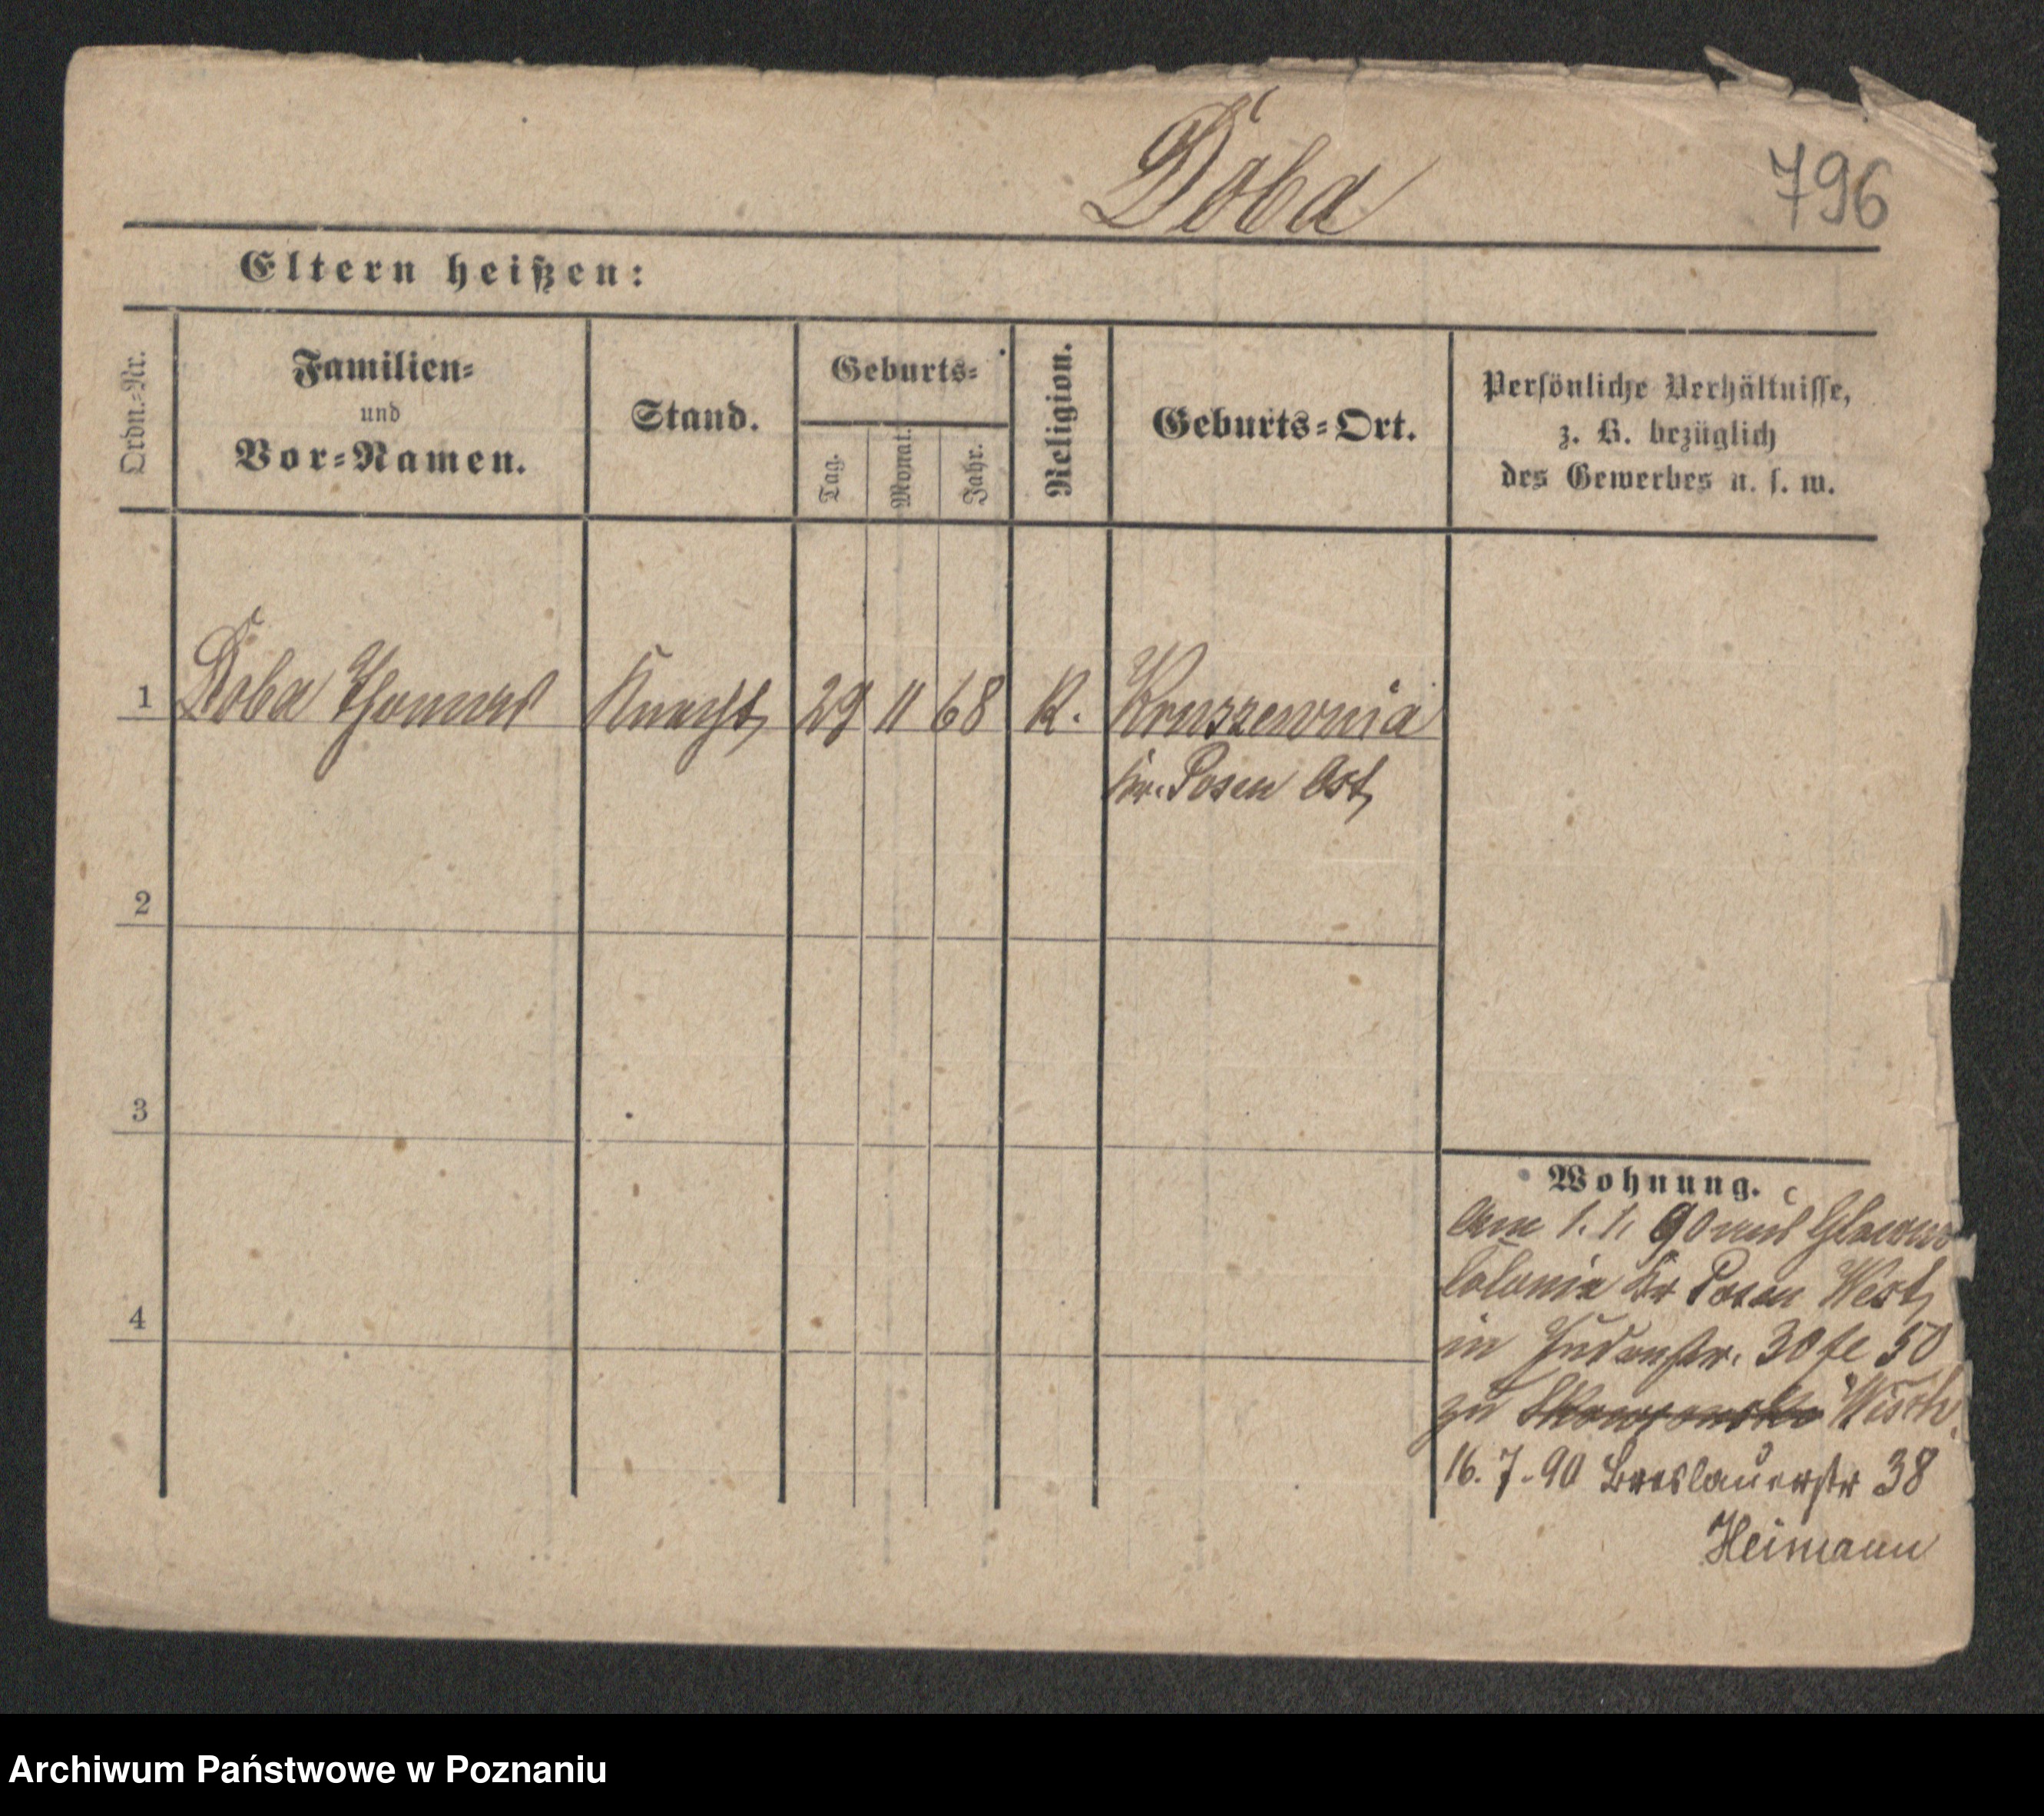 Doba
796
Eltern heißen:
Ordn.-Nr.
Familien-
und
Vor-Namen.
Stand.
Geburts-
Tag.
Monat.
Jahr.
Religion.
Geburts-Ort.
Persönliche Verhältnisse,
z. B. bezüglich
des Gewerbes u. s. w.
1 Doba Thomas Knecht 29 11 68 K. Kruszewnia
Kr. Posen Ost
2
3
4
Wohnung.
Am 1. 1. 90 aus
Colonie Kr Posen West
in Judenstr. 30
zu Wirth.
16. 7. 90 Breslauerstr 38
Heimann
Archiwum Państwowe w Poznaniu